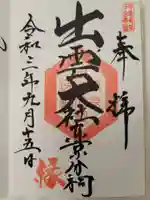 奉拝
出雲大社京都分祠
令和三年九月十五日
縁